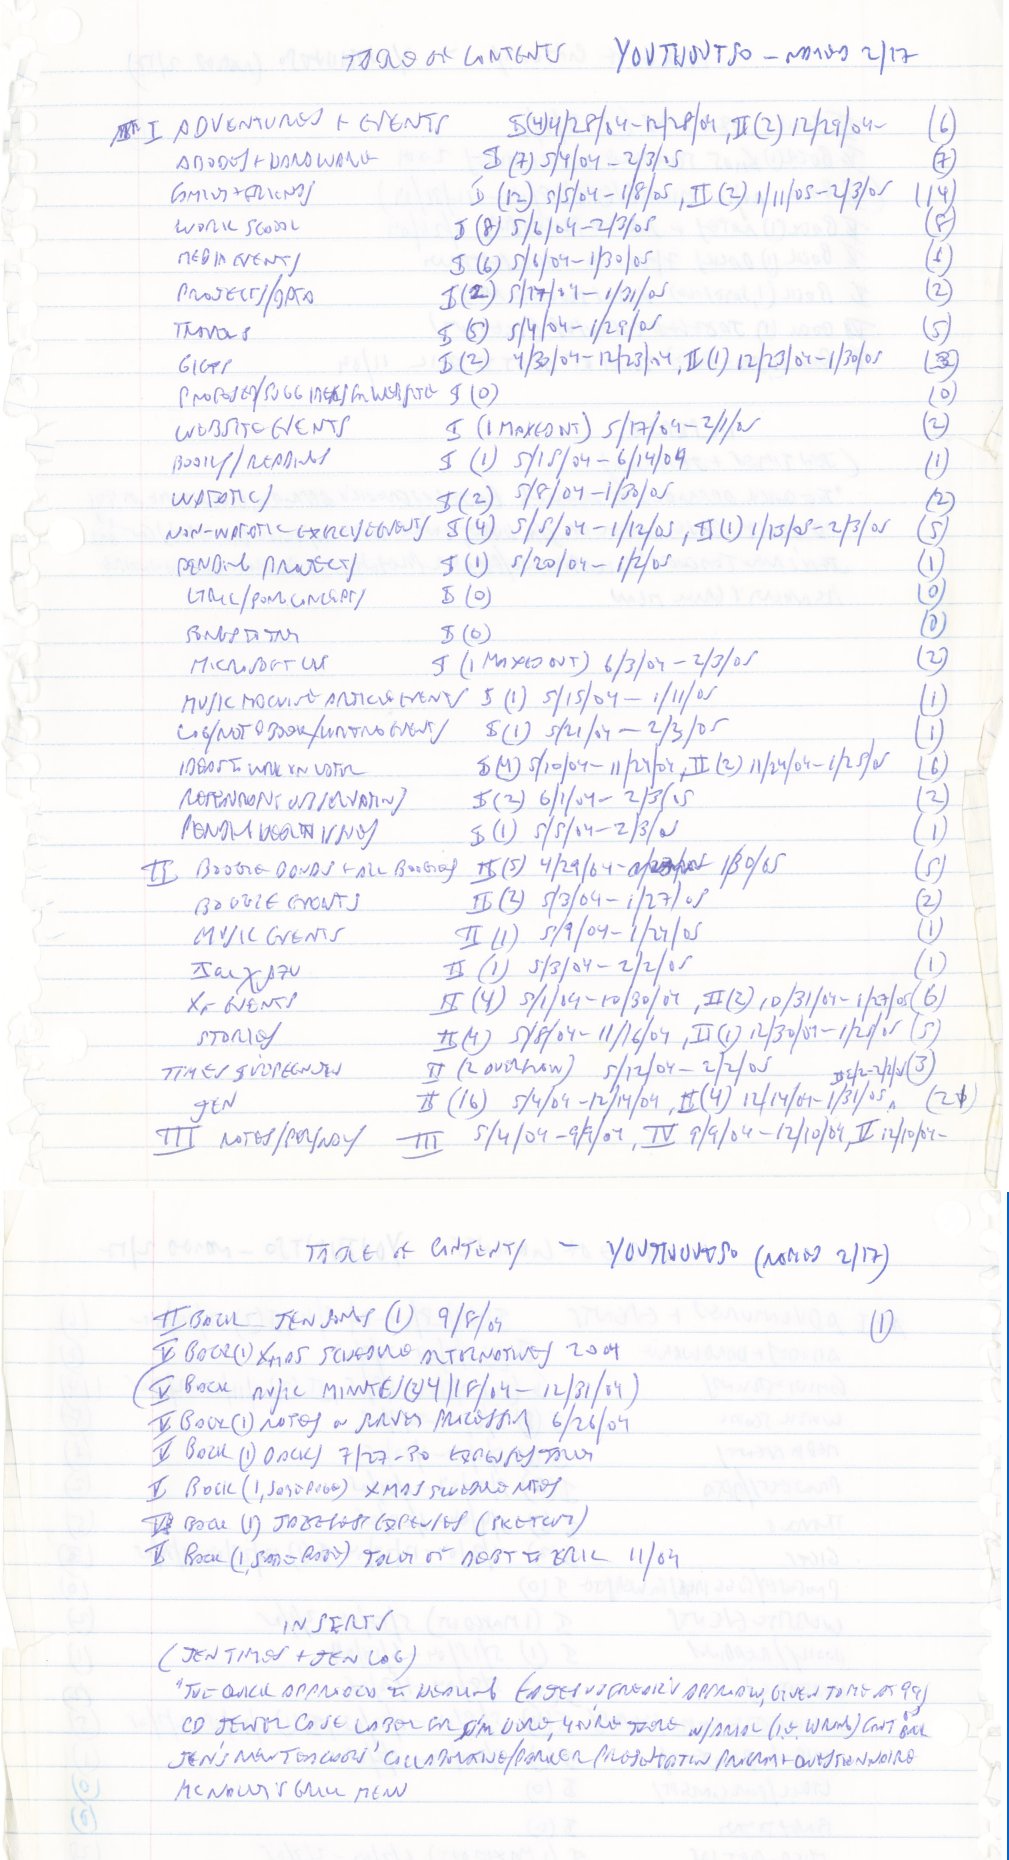 TABLE OF CONTENTS YOUTHOUTSO - NAMED 2/17
I ADVENTURES + EVENTS I (4) 4/28/04-12/28/04, II (2) 12/29/04- (6)
ABODES + HARDWARE I (7) 5/4/04-2/3/05 (7)
FAMILY + FRIENDS I (12) 5/5/04-1/8/05, II (2) 1/11/05-2/3/05 (14)
WORK SCHOOL I (8) 5/6/04-2/3/05 (8)
MEDIA EVENTS I (6) 5/6/04-1/30/05 (6)
PROJECTS/DATA I (2) 5/17/04-1/31/05 (2)
TRAVELS I (5) 5/4/04-1/29/05 (5)
GIGS I (2) 4/30/04-12/23/04, II (1) 12/23/04-1/30/05 (3)
PROPOSED/SUGG IDEAS FOR WEBSITE I (0) (0)
WEBSITE EVENTS I (1 MAXED OUT) 5/17/04-2/1/05 (2)
BOOKS/READING I (1) 5/15/04-6/14/04 (1)
I (2) 5/8/04-1/30/05 (2)
EVENTS I (4) 5/5/04-1/12/05, II (1) 1/13/05-2/3/05 (5)
PENDING PROJECTS I (1) 5/20/04-1/2/05 (1)
LYRIC/POEM CONCEPTS I (0) (0)
SONGS TO TRY I (0) (0)
MICROSOFT I (1 MAXED OUT) 6/3/04-2/3/05 (2)
MUSIC MACHINE ARTICLE EVENTS I (1) 5/15/04-1/11/05 (1)
LOG/NOTEBOOK/WRITING EVENTS I (1) 5/21/04-2/3/05 (1)
IDEAS TO WORK ON LATER I (4) 5/10/04-11/24/04, II (2) 11/24/04-1/25/05 (6)
OBSERVATIONS I (2) 6/1/04-2/3/05 (2)
HEALTH ISSUES I (1) 5/5/04-2/3/05 (1)
II BOOGIE BONDS + ALL BOOGIES II (5) 4/29/04- 1/30/05 (5)
BOOGIE EVENTS II (2) 5/3/04-1/27/05 (2)
MUSIC EVENTS II (1) 5/9/04-1/24/05 (1)
II (1) 5/3/04-2/2/05 (1)
EVENTS II (4) 5/1/04-10/30/04, II (2) 10/31/04-1/27/05 (6)
STORIES II (4) 5/8/04-11/16/04, II (1) 12/30/04-1/28/05 (5)
TIMES II (2 OVERFLOW) 5/12/04-2/2/05 (3)
JEN II (16) 5/4/04-12/14/04, II (4) 12/14/04-1/31/05, (21)
III NOTES/ III 5/4/04-9/9/04, IV 9/9/04-12/10/04, V 12/10/04-
TABLE OF CONTENTS - YOUTHOUTSO (NAMED 2/17)
II BACK JEN SONGS (1) 9/8/04 (1)
V BACK (1) XMAS SCHEDULE ALTERNATIVES 2004
(V BACK MUSIC MINUTES (2) 4/18/04-12/31/04)
V BACK (1) NOTES ON PROCESSING 6/26/04
V BACK (1) 7/27-30 EXPENSES TALLY
V BACK (1, SAME PAGE) XMAS SCHEDULE NOTES
V BACK (1) JAZZFEST EXPENSES (SKETCHY)
V BACK (1, SAME PAGE) TALLY OF DEBT TO ERIC 11/04
INSERTS
(JEN TIMES + JEN LOG)
"THE QUICK APPROACH TO HEALING APPROACH, GIVEN TO ME AT 99)
CD JEWEL CASE LABEL FOR I'M HERE, YOU'RE THERE W/ (I.E. WRONG) FONT
JEN'S NEW TEACHERS' COLLABORATIVE/ PRESENTATION PROGRAM + QUESTIONNAIRE
MCNALLY'S GRILL MENU